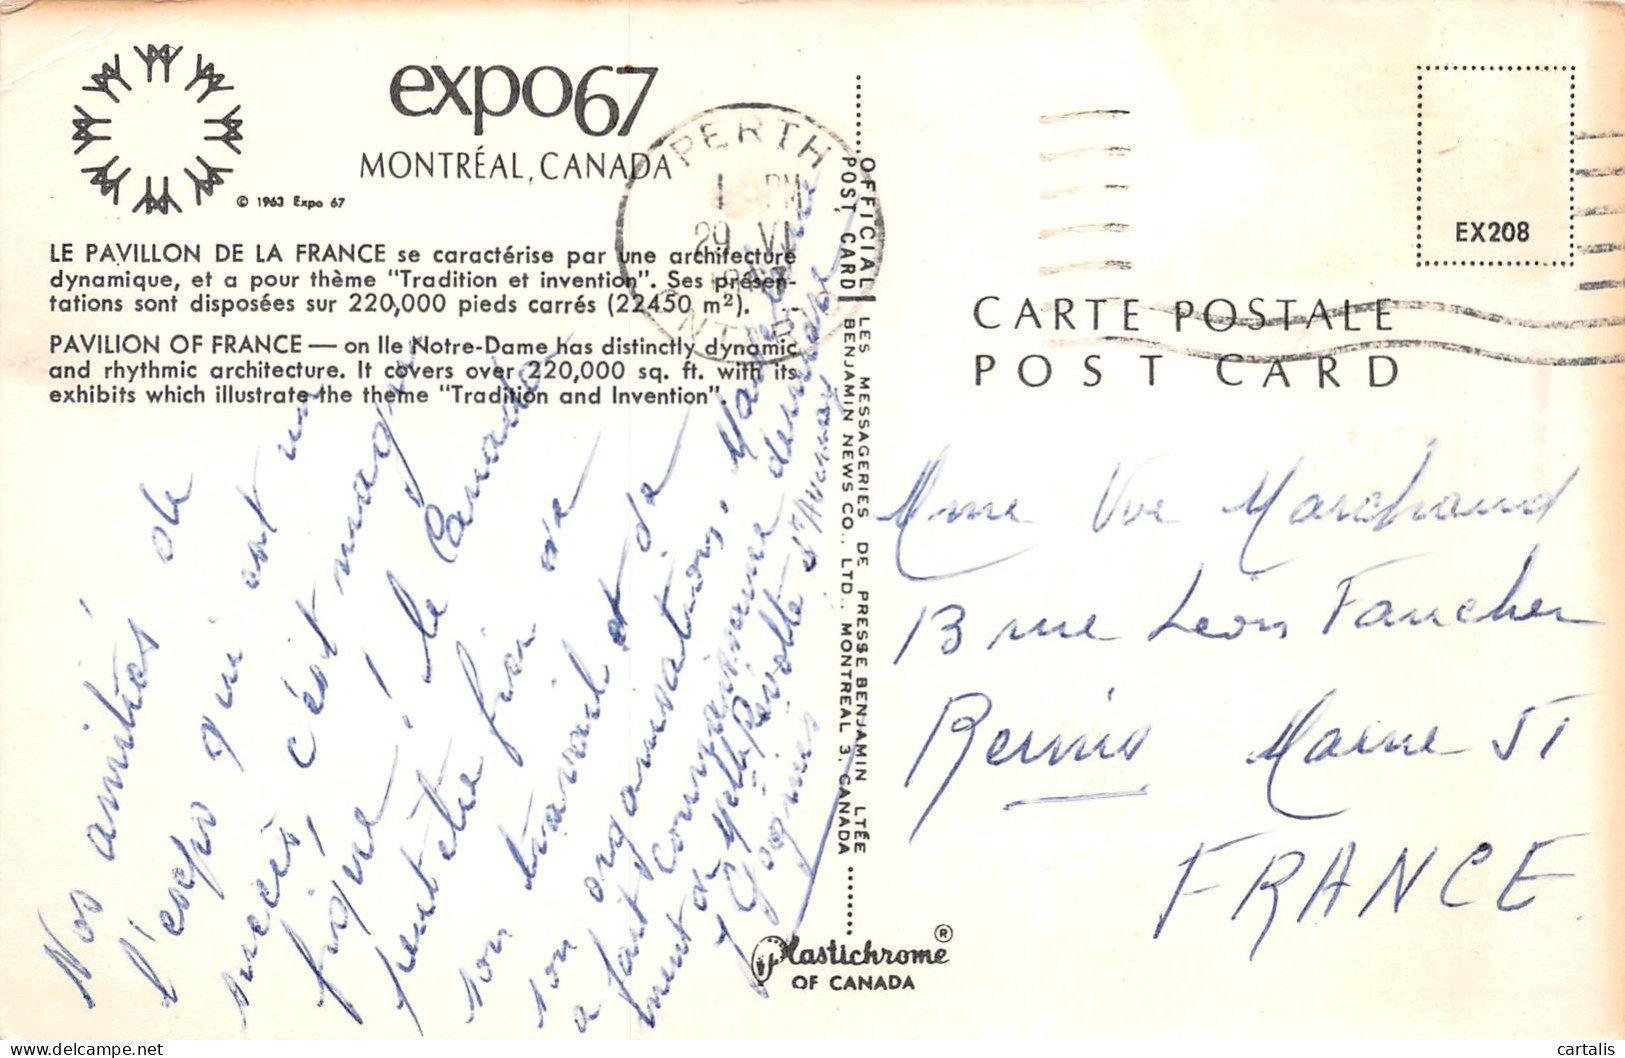 expo67
MONTRÉAL, CANADA
© 1963 Expo 67
LE PAVILLON DE LA FRANCE se caractérise par une architecture
dynamique, et a pour thème "Tradition et invention". Ses présen-
tations sont disposées sur 220,000 pieds carrés (22450 m²).
PAVILION OF FRANCE — on Ile Notre-Dame has distinctly dynamic
and rhythmic architecture. It covers over 220,000 sq. ft. with its
exhibits which illustrate the theme "Tradition and Invention".
PERTH
1 PM
29 VI
ONT
Nos amitiés de
l'expo qui est un
succès, c'est magni
fique! le Canada
peut être fier de
son travail et de
son organisation,
a fait connaissance
ment de
OFFICIAL
POST CARD
LES MESSAGERIES DE PRESSE BENJAMIN LTÉE
BENJAMIN NEWS CO., LTD., MONTREAL 3, CANADA
Plastichrome ®
OF CANADA
EX208
CARTE POSTALE
POST CARD
Mme Vve Marchand
13 rue Léon Faucher
Reims Marne 51
FRANCE.
cartalis